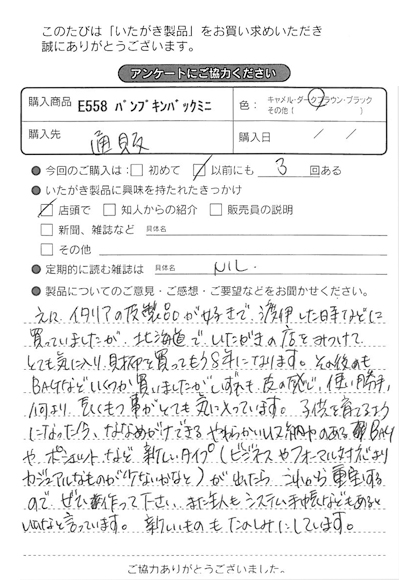 このたびは「いたがき製品」をお買い求めいただき
誠にありがとうございます。
アンケートにご協力ください
購入商品 E558 パンプキンバックミニ 色： キャメル・ダークブラウン・ブラック
その他（ ）
購入先 通販 購入日 / /
● 今回のご購入は：□ 初めて □ 以前にも 3 回ある
● いたがき製品に興味を持たれたきっかけ
□ 店頭で □ 知人からの紹介 □ 販売員の説明
□ 新聞、雑誌など 具体名
□ その他
● 定期的に読む雑誌は 具体名 NIL.
● 製品についてのご意見・ご感想・ご要望などをお聞かせください。
元々 イタリアの皮製品が好きで、渡伊した時などに
買っていましたが、北海道で いたがきの店をみつけて
とても気に入り、財布を買ってもう8年になります。その後も
BAGなどいくつか買いましたがいずれも 皮の感じ、使い勝手、
何より 長くもつ事がとても気に入っています。子供を育てるよう
になった今、ななめがけできる やわらかい 収納力のある BAG
や、ポシェットなど 新しいタイプ（ビジネスやフォーマル対応より
カジュアルなものが少ないかなと）が出たら これから重宝する
ので ぜひ 作って下さい。また主人も システム手帳などもあると
いいなと言っています。新しいものも たのしみにしています。
ご協力ありがとうございました。